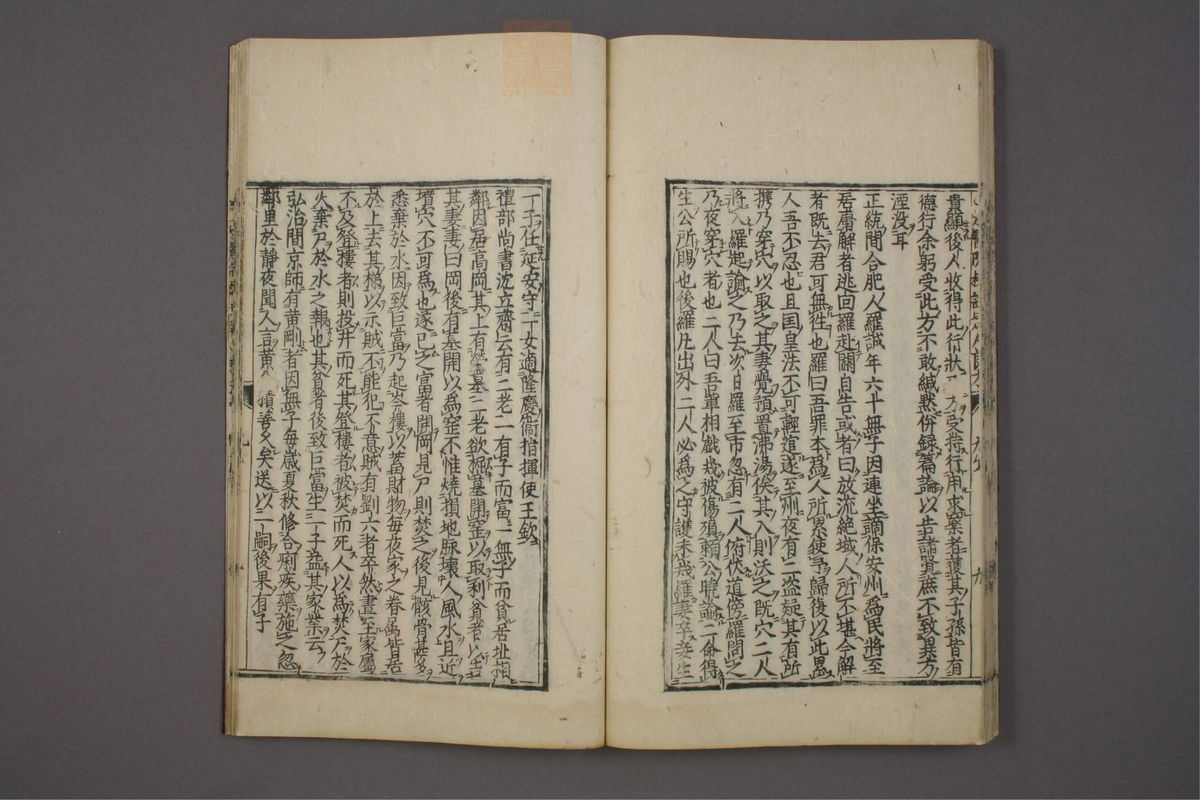 貴顯後人收得此行狀
德行余躬受此方不敢緘默份録篇論以告諸賢庶不致異方
湮没耳
正統間合肥人羅誠年六十無子因連坐謫保安州爲民將至
居庸解者逃回羅赴關自告或者曰放流絶域人所不堪今解
者既去君可無徃也羅曰吾罪本爲人所累使予歸復以此累
人吾不忍也且国皇法不可輕逭遂至州夜有二盗疑其有所
携乃穿穴以取之其妻覺預置沸湯俟其入則沃之既穴二人
將入羅起諭之乃去次日羅至市忽有二人俯伏道傍羅問之
乃夜穿穴者也二人曰吾輩相戯幾被傷殞頼公曉諭二命得
生公所賜也後羅凡出外二人必爲之守護未幾羅妻卒妾生
丁子任延安守一女適隆慶衞指揮使王欽
禮部尚書沈立齋云有二老一有子而富一無子而貧居址相
鄰因居高岡其上有墓二老欲掘墓開窑以取利貧者以告
其妻妻曰岡後有墓開以爲窑不惟燒損地脉壞人風水且近
墳穴不可爲也遂已之富者開岡見尸則焚之後見骸骨甚多
悉棄於水因致巨富乃起岑樓以蓄財物毎夜家之眷属皆居
於上去其梯以示賊不能犯不意賊有劉六者卒然晝至家屬
不及登樓者則投井而死其登樓者被焚而死人以爲焚尸於
火棄尸於水之報也其貧者後致巨富生三子益其家業云
弘治間京師有黄剛者因無子毎歳夏秋修合痢疾藥施之忽
鄰里於静夜聞人言黄 積善久矣送以二嗣後果有子